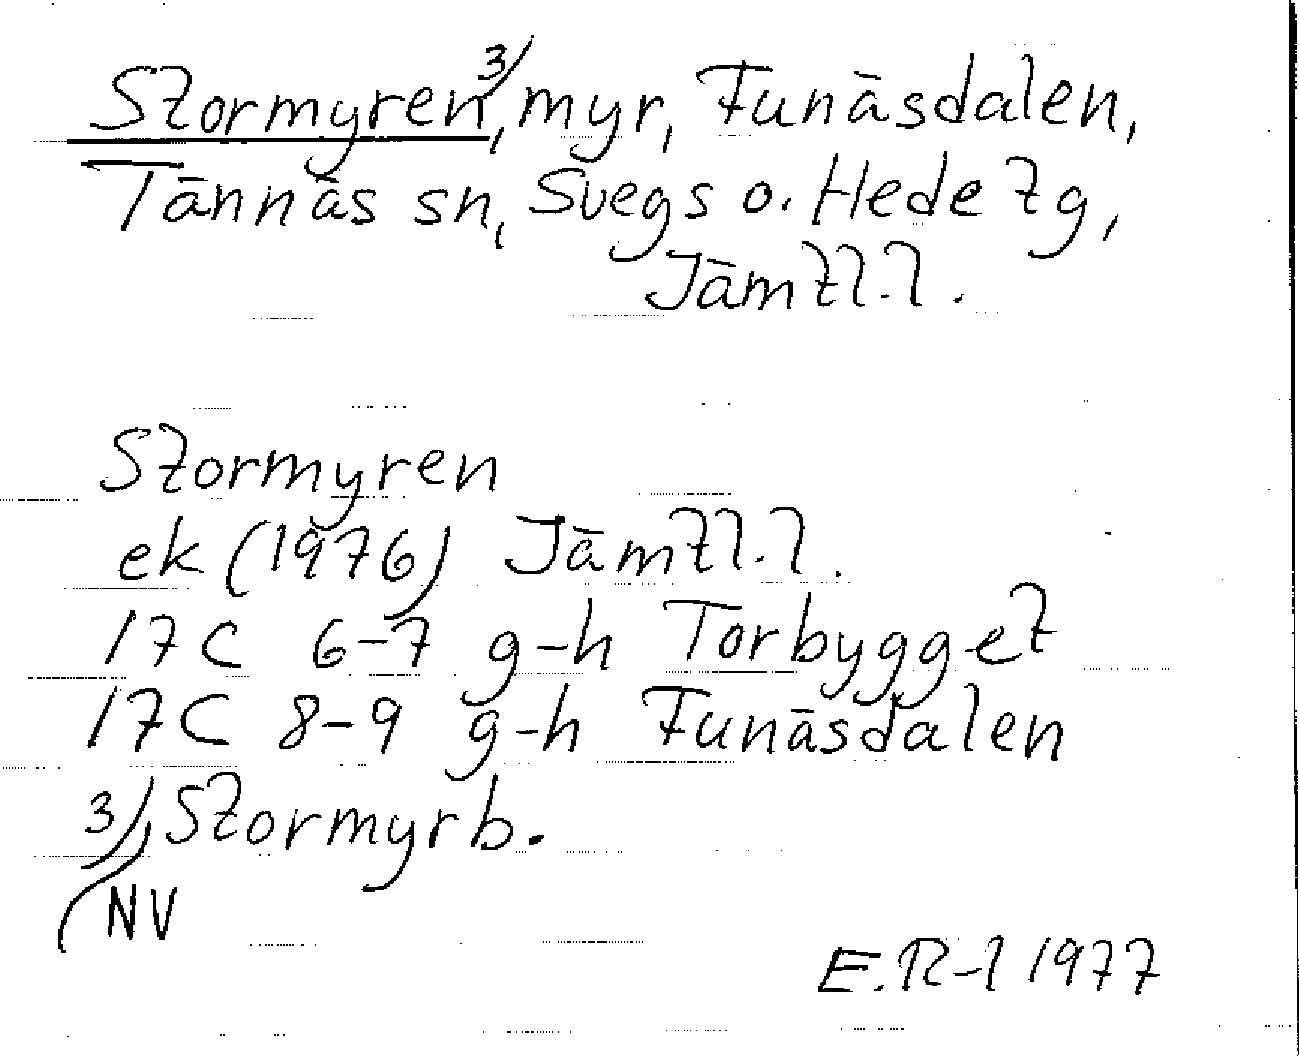 Stormyren,³⁾ myr, Funäsdalen,
Tännäs sn, Svegs o. Hede tg,
Jämtl.l.
Stormyren
ek (1976) Jämtl.l.
17C 6-7 g-h Torbygget
17C 8-9 g-h Funäsdalen
3) Stormyrb.
NV
E.R-l 1977